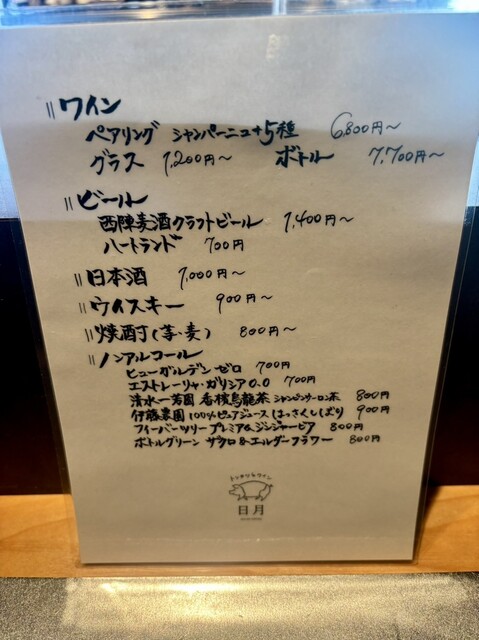 〃ワイン
ペアリング シャンパーニュ+5種 6,800円〜
グラス 1,200円〜 ボトル 7,700円〜
〃ビール
西陣麦酒クラフトビール 1,400円〜
ハートランド 700円
〃日本酒 1,000円〜
〃ウイスキー 900円〜
〃焼酎(芋・麦) 800円〜
〃ノンアルコール
ヒューガルデンゼロ 700円
エストレーリャ・ガリシア0.0 700円
清水一芳園 香檳烏龍茶 シャンピンウーロン茶 800円
伊藤農園 100%ピュアジュース(はっさくしぼり) 900円
フィーバーツリー プレミアムジンジャービア 800円
ボトルグリーン ザクロ&エルダーフラワー 800円
日月